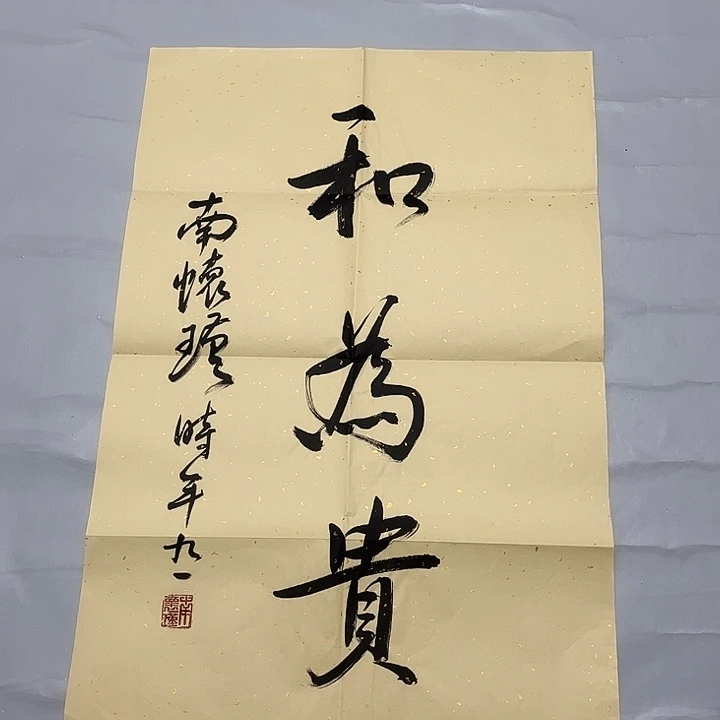 和為貴
南懷瑾 時年九一